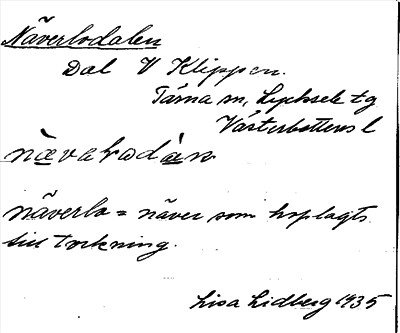 Näverlodalen
Dal V Klippen.
Tärna sn, Lycksele tg
Västerbottens l
nävärlo = näver som hoplagts
till torkning.
Lisa Lidberg 1935